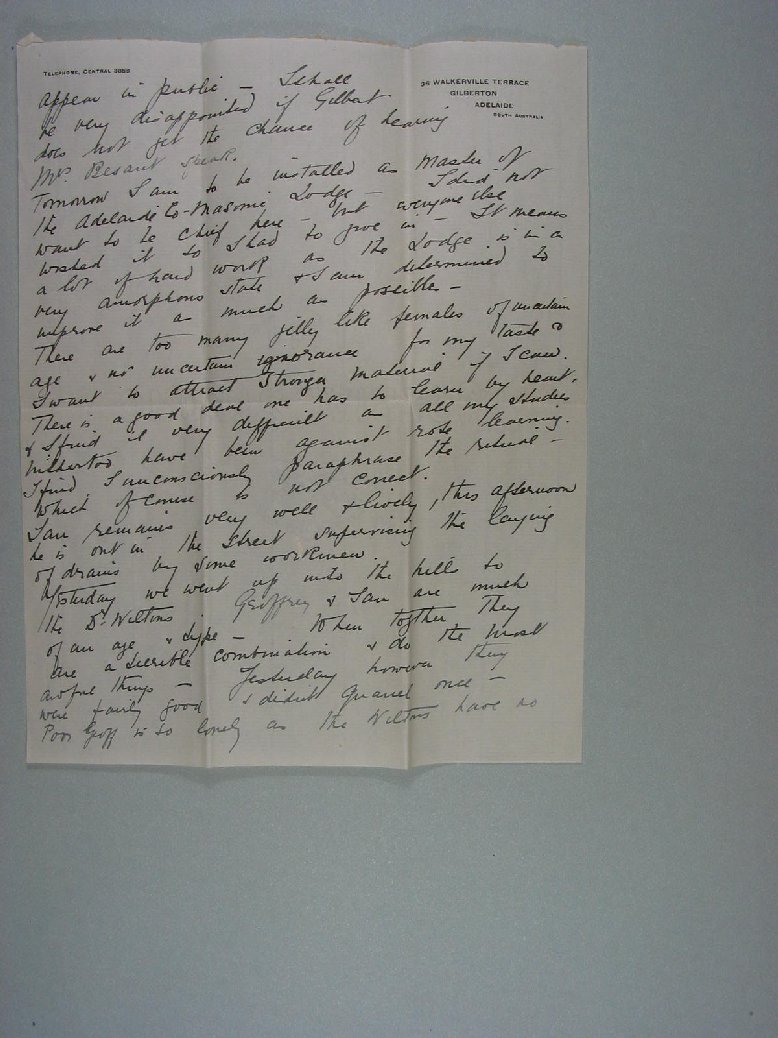 TELEPHONE, CENTRAL 3889
36 WALKERVILLE TERRACE
GILBERTON
ADELAIDE
SOUTH AUSTRALIA
appear in public – I shall
be very disappointed if Gilbert
does not get the chance of hearing
Mrs. Besant speak.
Tomorrow I am to be installed as Master of
the Adelaide Co-Masonic Lodge – I did not
want to be chief here – but everyone else
wished it so I had to give in – It means
a lot of hard work as the Lodge is in a
very amorphous state & I am determined to
improve it as much as possible –
There are too many jelly like females of uncertain
age & no uncertain ignorance for my taste &
I want to attract stronger material if I can.
There is a good deal one has to learn by heart.
& I find it very difficult as all my studies
hitherto have been against rote learning.
I find I unconsciously paraphrase the ritual –
which of course is not correct.
Ian remains very well & lively, this afternoon
he is out in the street supervising the laying
of drains by some workmen.
Yesterday we went up into the hills to
the Dr. Wiltons Geoffrey & Ian are much
of an age & type – When together they
are a terrible combination & do the most
awful things – Yesterday however they
were fairly good & didn't quarrel once –
Poor Geoff is so lonely as the Wiltons have no